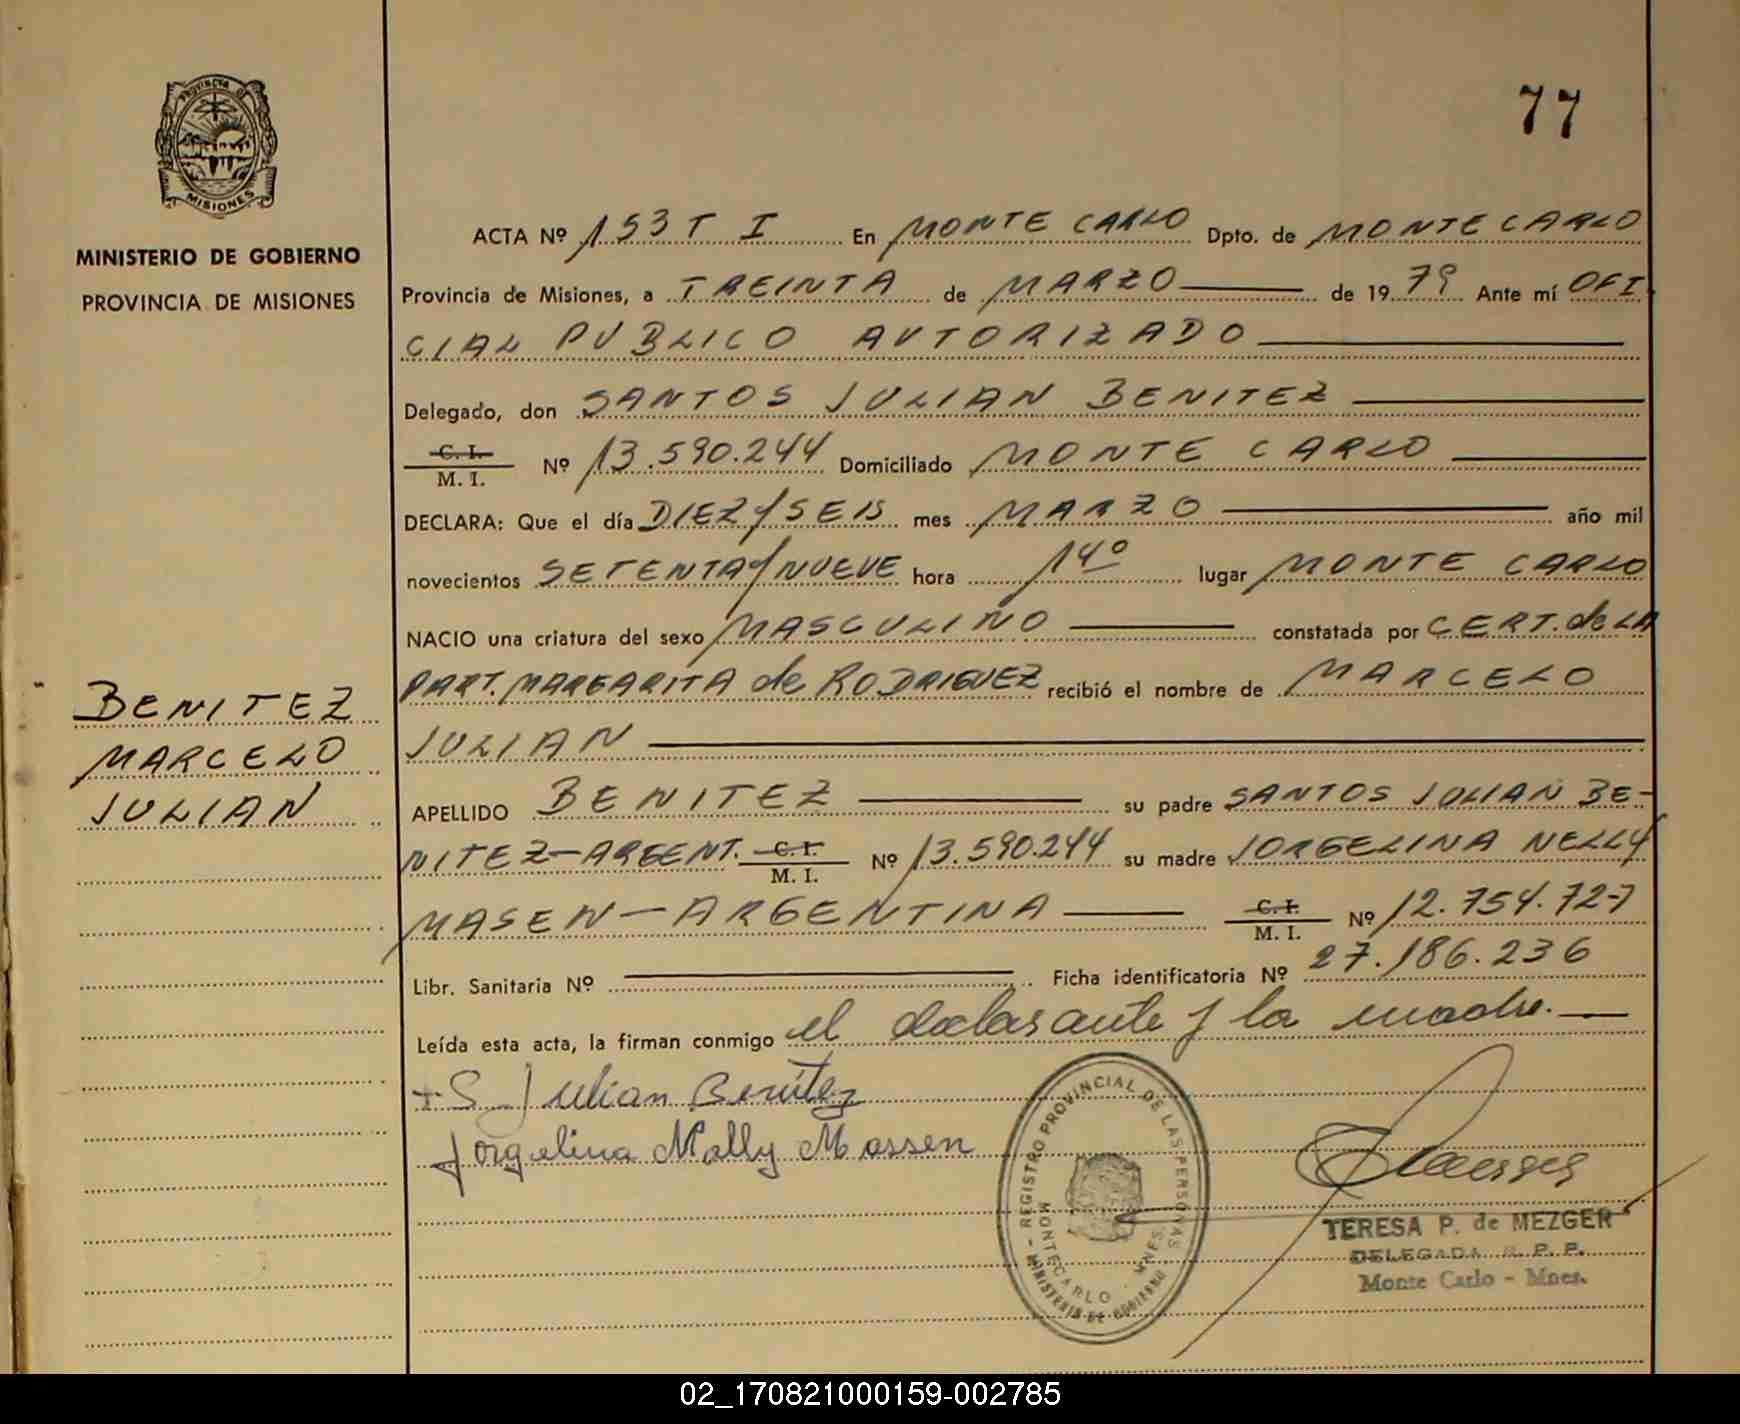 77
PROVINCIA DE
MISIONES
MINISTERIO DE GOBIERNO
PROVINCIA DE MISIONES
BENITEZ
MARCELO
JULIAN
ACTA Nº 153 T I En MONTE CARLO Dpto. de MONTE CARLO
Provincia de Misiones, a TREINTA de MARZO de 1979 Ante mí OFI
CIAL PUBLICO AUTORIZADO
Delegado, don SANTOS JULIAN BENITEZ
C. I.
M. I. Nº 13.590.244 Domiciliado MONTE CARLO
DECLARA: Que el día DIEZ y SEIS mes MARZO año mil
novecientos SETENTA y NUEVE hora 14º lugar MONTE CARLO
NACIO una criatura del sexo MASCULINO constatada por CERT. de LA
PART. MARGARITA de RODRIGUEZ recibió el nombre de MARCELO
JULIAN
APELLIDO BENITEZ su padre SANTOS JULIAN BE-
NITEZ-ARGENT. C. I. M. I. Nº 13.590.244 su madre JORGELINA NELLY
MASEN-ARGENTINA C. I. M. I. Nº 12.754.727
Libr. Sanitaria Nº Ficha identificatoria Nº 27.186.236
Leída esta acta, la firman conmigo el declarante y la madre.
+ S. Julian Benítez
Jorgelina Nally Massen
REGISTRO PROVINCIAL DE LAS PERSONAS
MINISTERIO DE GOBIERNO
MONTECARLO MNES.
TERESA P. de MEZGER
DELEGADA R. P. P.
Monte Carlo - Mnes.
02_170821000159-002785